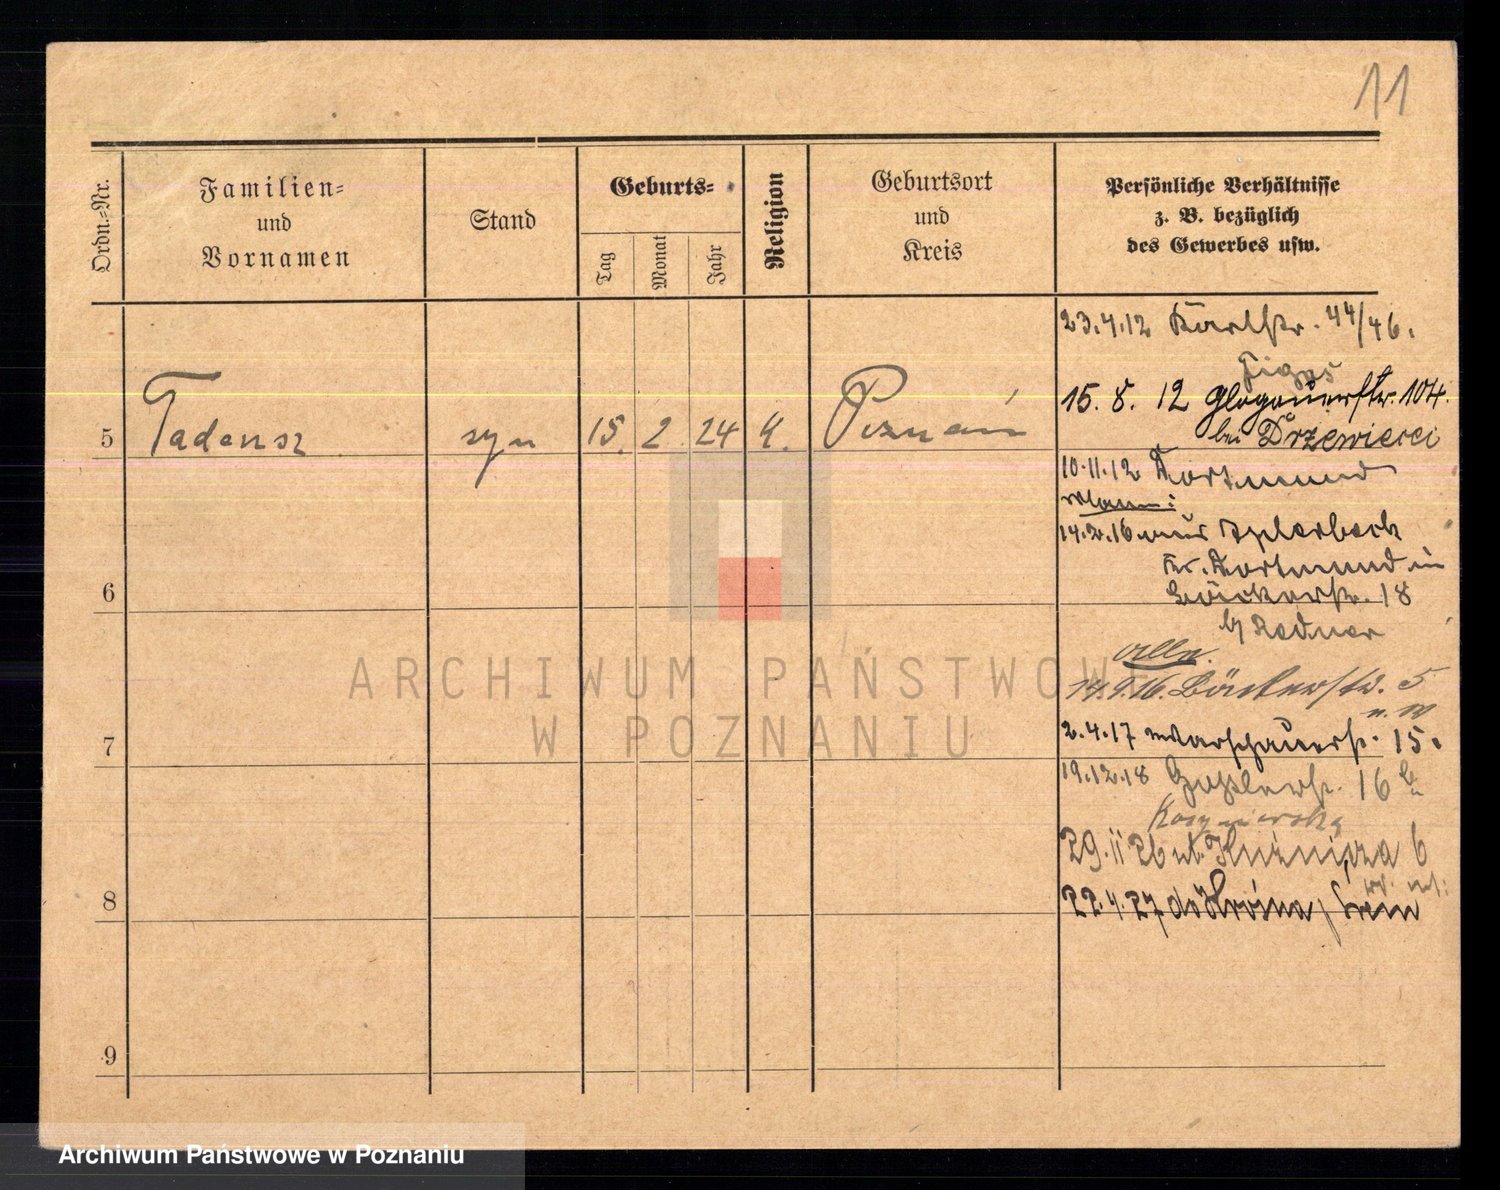 11
Ordn.-Nr.
Familien-
und
Vornamen
Stand
Geburts-
Tag
Monat
Jahr
Religion
Geburtsort
und
Kreis
Persönliche Verhältnisse
z. B. bezüglich
des Gewerbes usw.
5 Tadeusz syn 15. 2. 24 k. Poznań
6
7
8
9
23.4.12 Karlstr. 44/46.
15. 8. 12 Glogauerstr. 104.
bei Drzewiecci
10.11.12 Dortmund
14.2.16 aus Aplerbeck
Kr. Dortmund in
Bäckerstr. 18
b/ Redner
alln.
14.9.16. Bäckerstr. 5
2.4.17 Warschauerstr. 15.
19.12.18 Goßlerstr. 16
29.11 26 ul. Kuźnicza 6
22.4.27 do / Śrem
ARCHIWUM PAŃSTWOWE
W POZNANIU
Archiwum Państwowe w Poznaniu